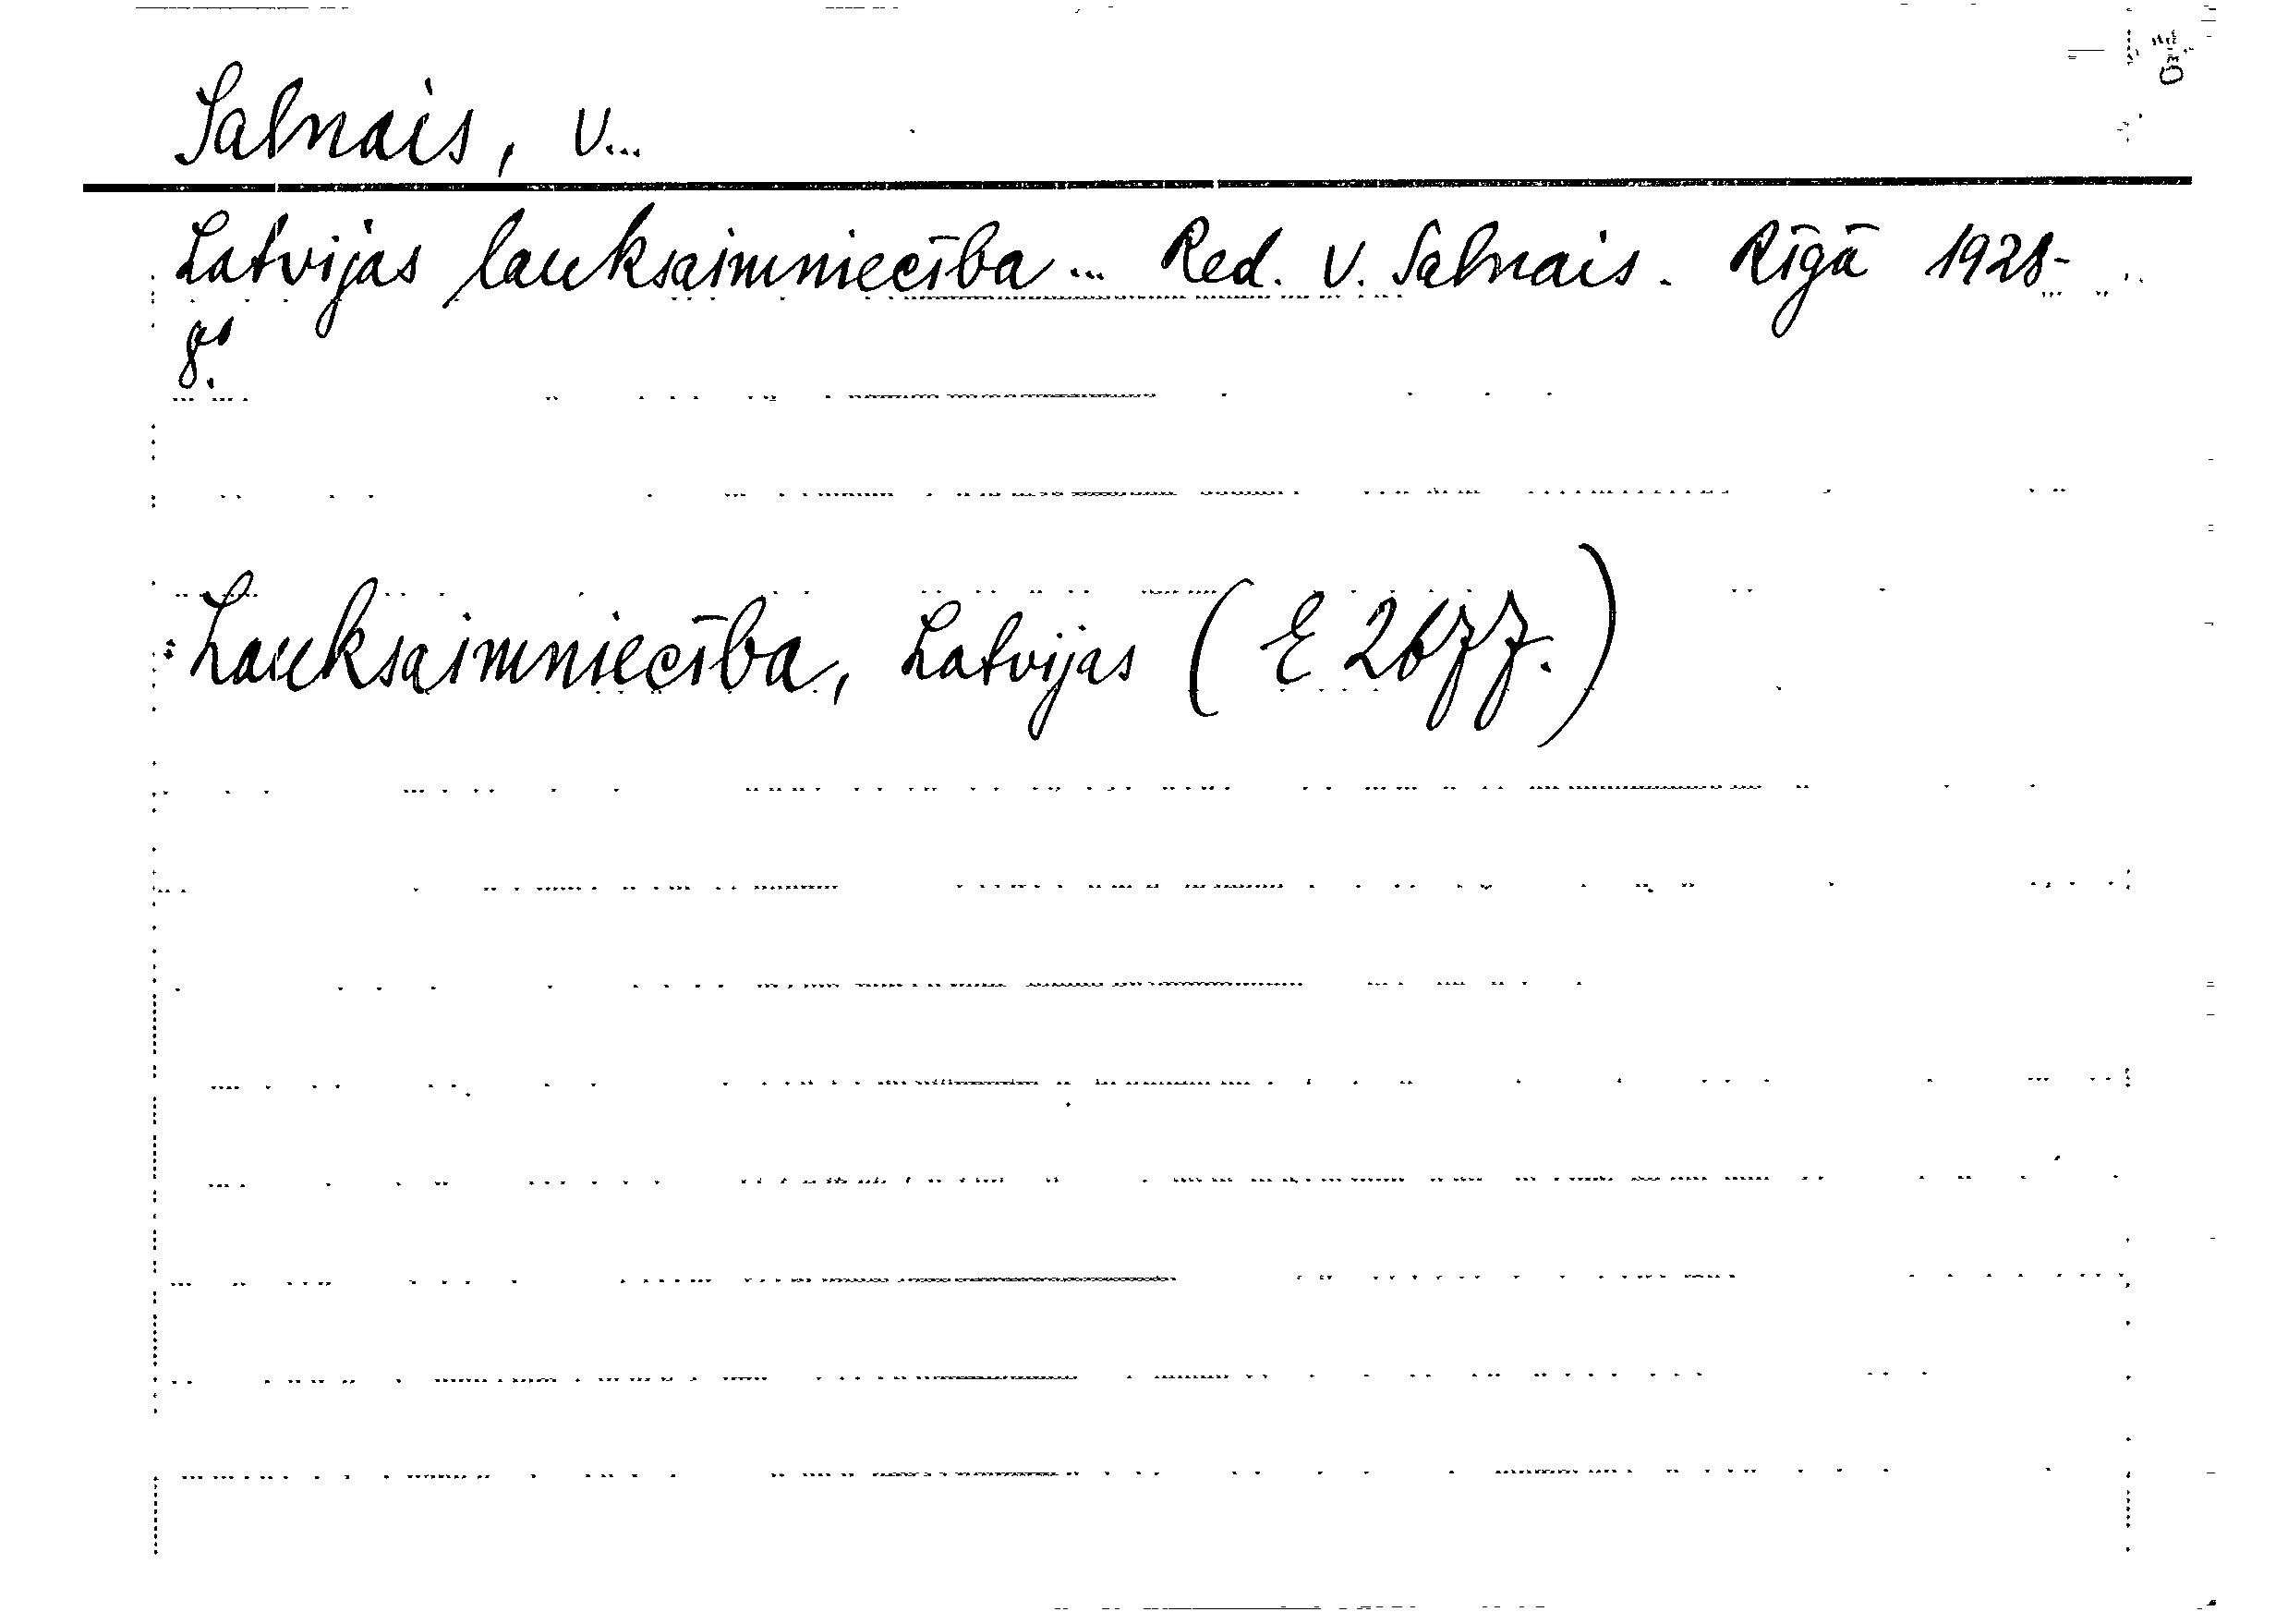 Salnais, V...
Latvijas lauksaimniecība... Red. V. Salnais. Rīgā 1928-
8°.
Lauksaimniecība, Latvijas (E 2677.)